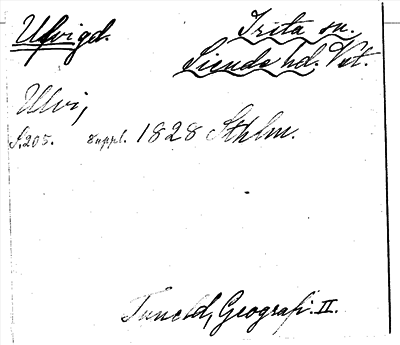 Ulvigd. Irsta sn.
Siende hd. Vstm.
Ulvi,
S. 205. Suppl. 1828 Sthlm.
Tuneld, Geografi. II.